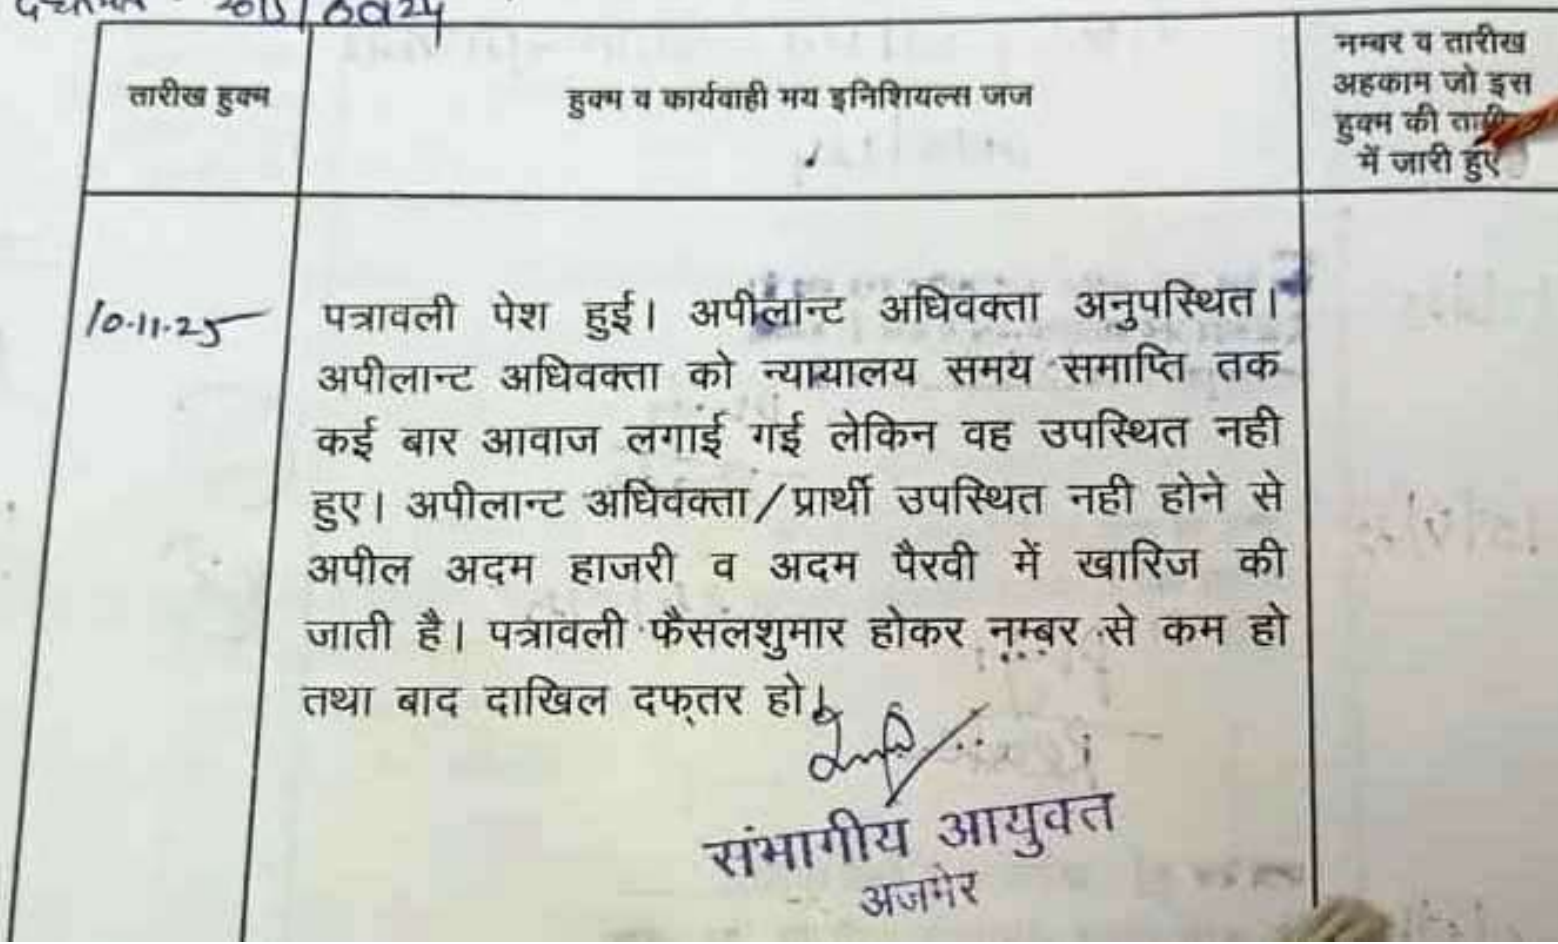 तारीख हुक्म
हुक्म व कार्यवाही मय इनिशियल्स जज
नम्बर व तारीख
अहकाम जो इस
हुक्म की
में जारी हुए
10.11.25
पत्रावली पेश हुई। अपीलान्ट अधिवक्ता अनुपस्थित।
अपीलान्ट अधिवक्ता को न्यायालय समय समाप्ति तक
कई बार आवाज लगाई गई लेकिन वह उपस्थित नही
हुए। अपीलान्ट अधिवक्ता/प्रार्थी उपस्थित नही होने से
अपील अदम हाजरी व अदम पैरवी में खारिज की
जाती है। पत्रावली फैसलशुमार होकर नम्बर से कम हो
तथा बाद दाखिल दफ्तर हो।
संभागीय आयुक्त
अजमेर